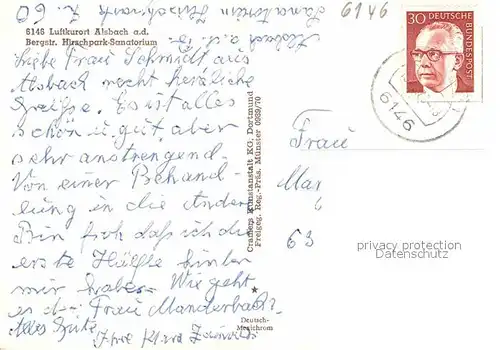 6146
6146 Luftkurort Alsbach a.d.
Bergstr. Hirschpark-Sanatorium
Liebe Frau Schmidt aus
Alsbach recht herzliche
Grüsse. Es ist alles
schön u. gut, aber
sehr anstrengend.
Von einer Behand
lung in die Andere
Bin froh dass ich die
erste Hälfte hinter
mir habe. Wie geht
es d. Frau Manderbach
Alles Gute
Ihre Klara
Cramers Kunstanstalt KG, Dortmund
Freigeg. Reg.-Präs. Münster 0989/70
★
Deutsch-
Mexichrom
30 DEUTSCHE BUNDESPOST
6146
Frau
Mar
63
privacy protection
Datenschutz